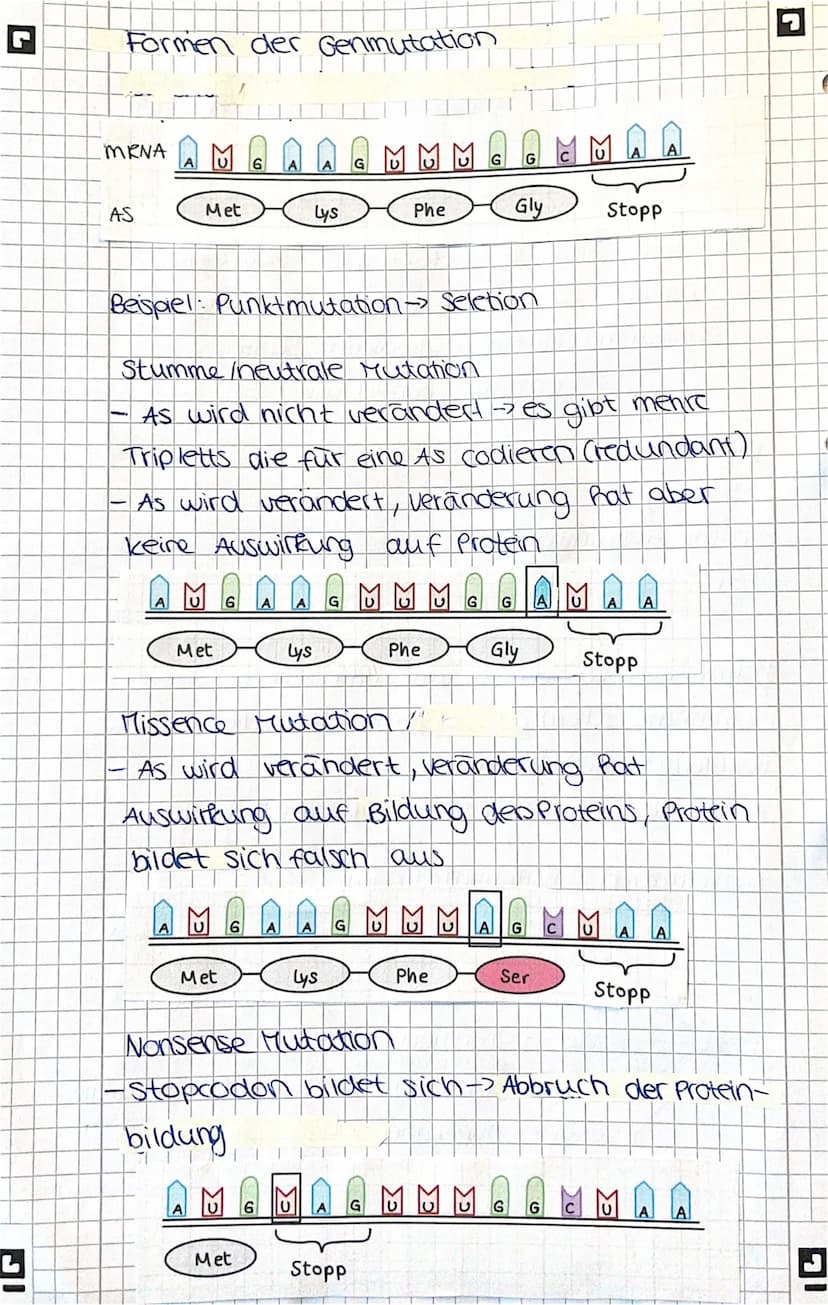 Formen der Genmutation
mRNA A U G A A G U U U G G C U A A
AS Met Lys Phe Gly Stopp
Beispiel: Punktmutation → Seletion
Stumme/neutrale Mutation
- AS wird nicht verändert → es gibt mehre
Tripletts die für eine AS codieren (redundant)
- AS wird verändert, veränderung hat aber
keine Auswirkung auf Protein
A U G A A G U U U G G A U A A
Met Lys Phe Gly Stopp
Missence Mutation /
- AS wird verändert, veränderung hat
Auswirkung auf Bildung des Proteins, Protein
bildet sich falsch aus
A U G A A G U U U A G C U A A
Met Lys Phe Ser Stopp
Nonsense Mutation
- Stopcodon bildet sich → Abbruch der Protein-
bildung
A U G U A G U U U G G C U A A
Met Stopp